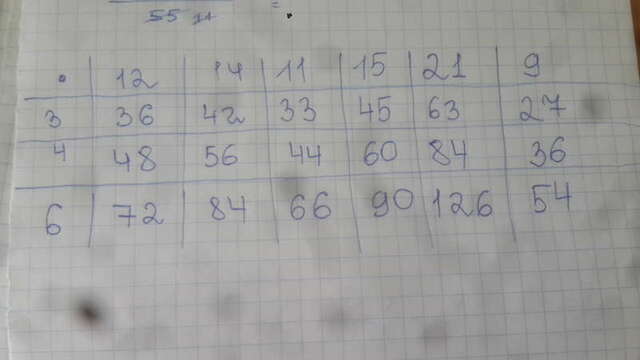 55 :11 =
· 12 14 11 15 21 9
3 36 42 33 45 63 27
4 48 56 44 60 84 36
6 72 84 66 90 126 54